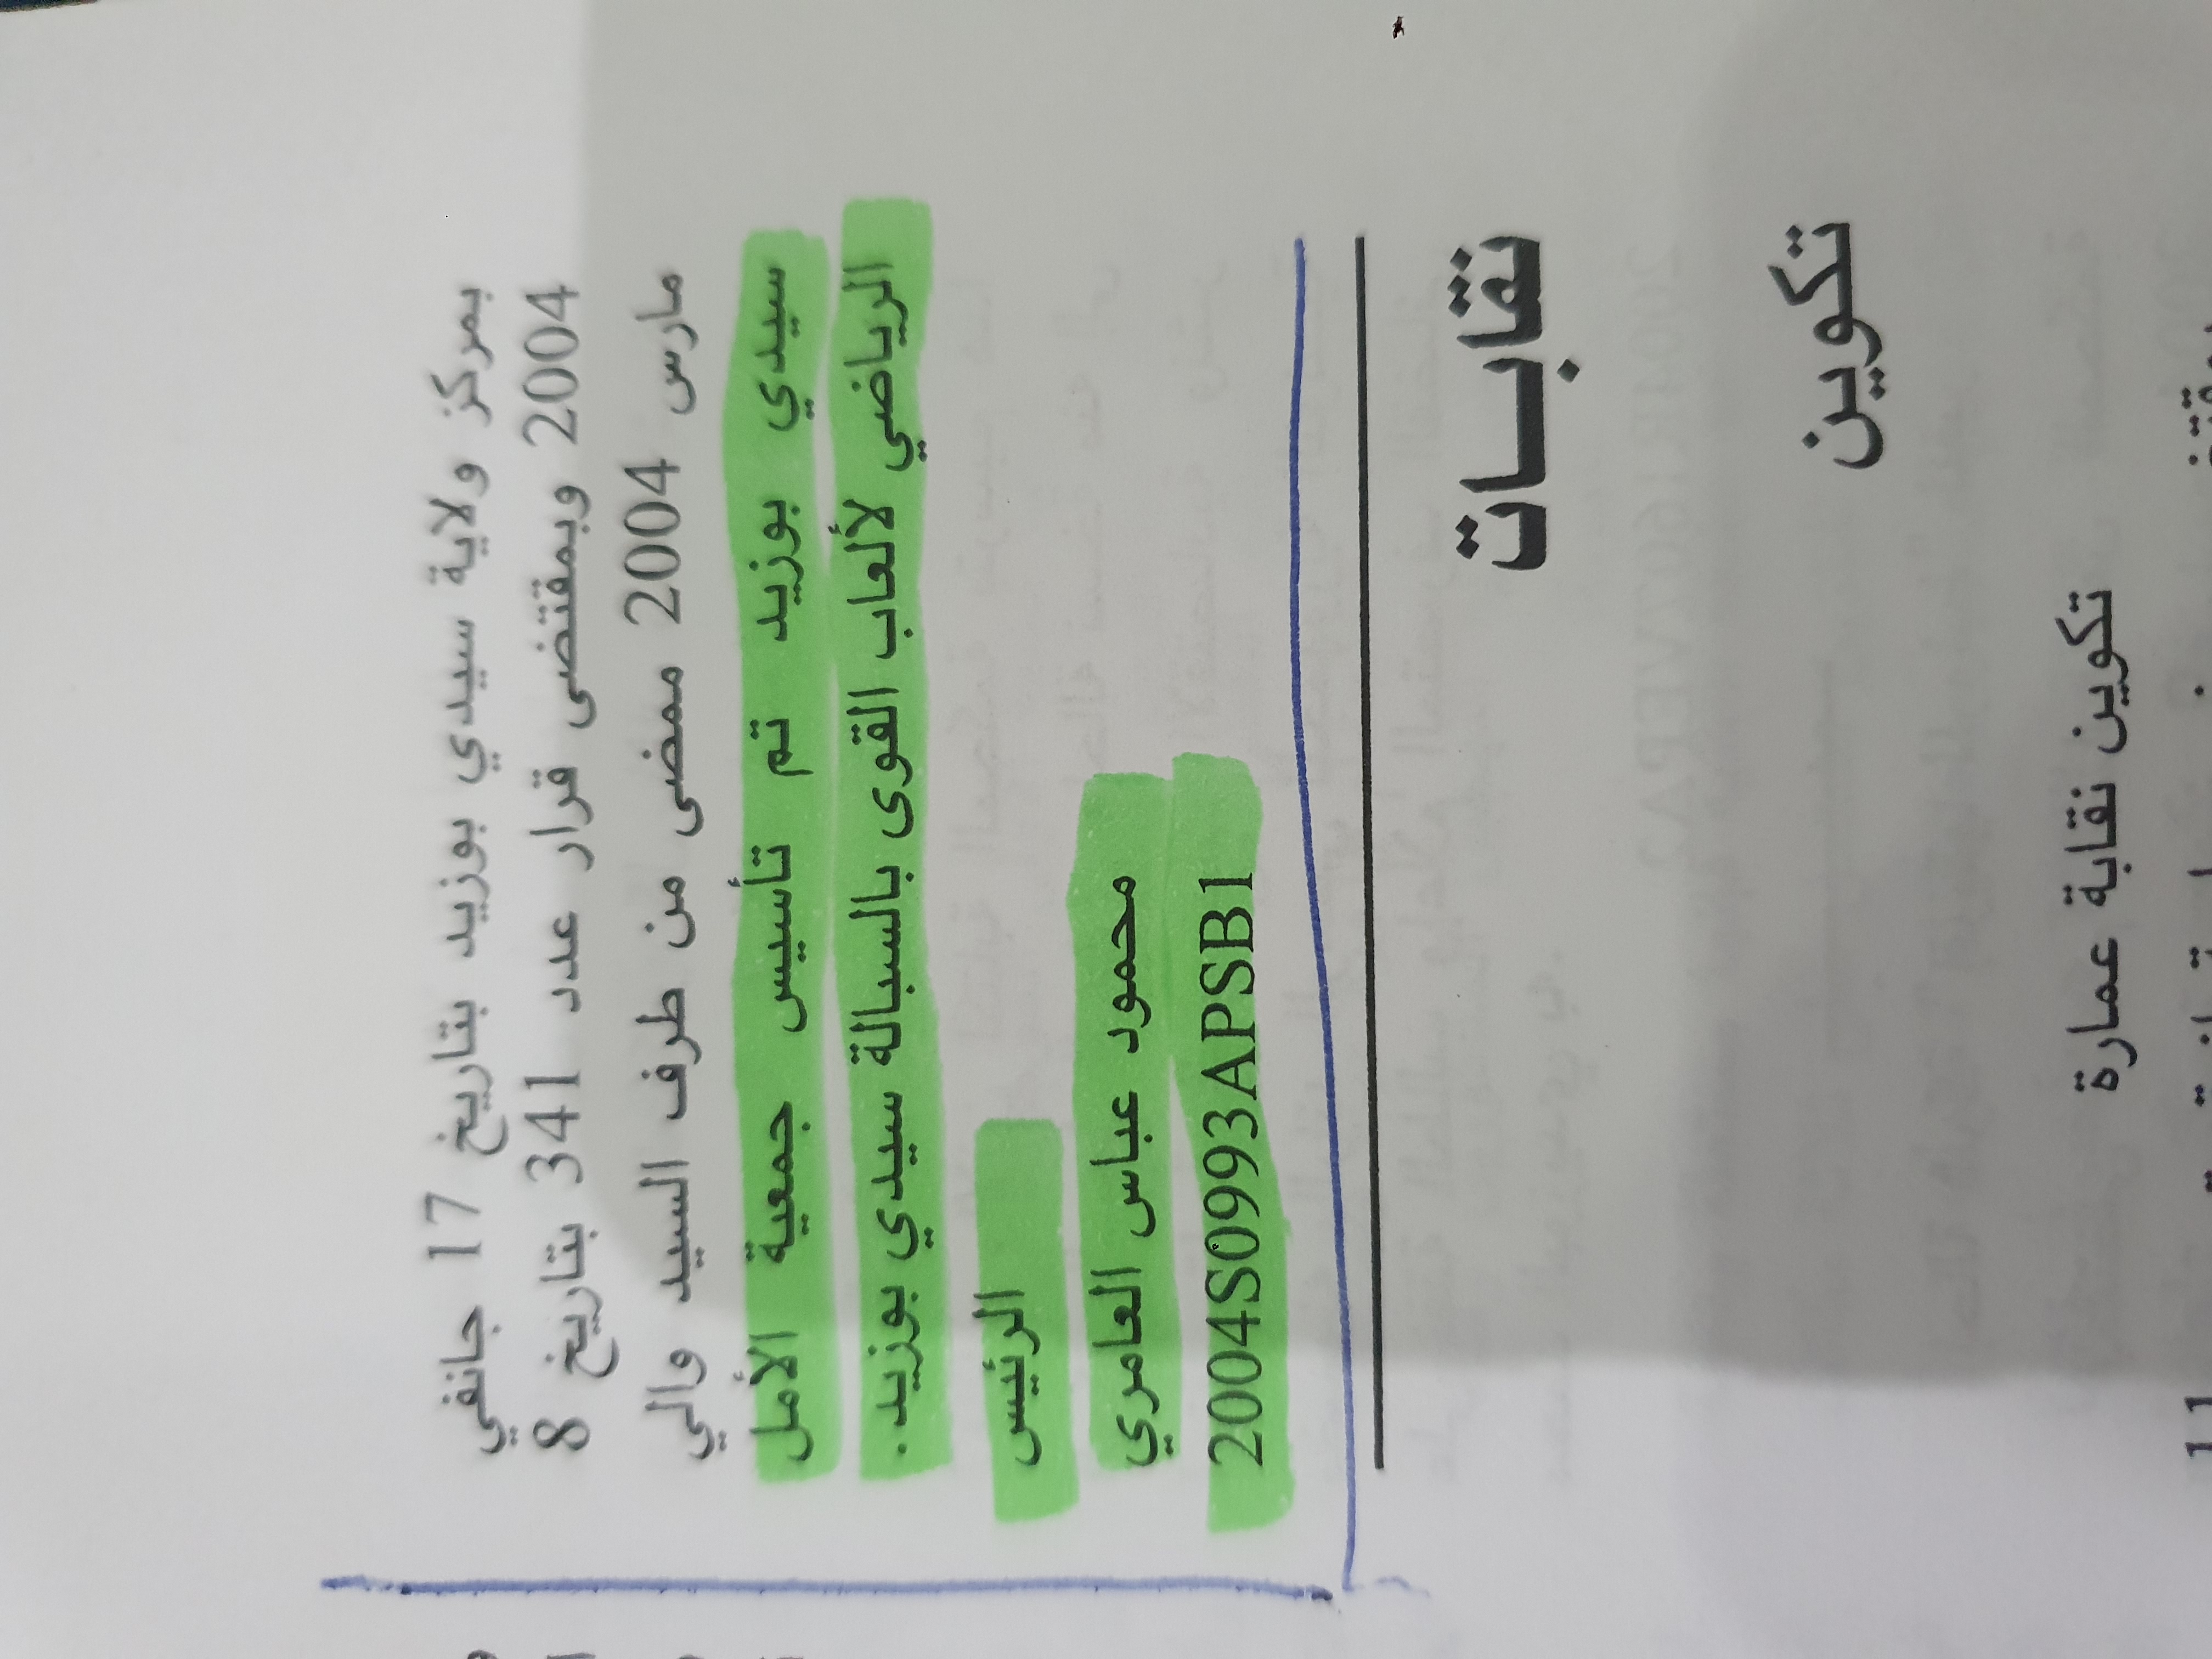 بمركز ولاية سيدي بوزيد بتاريخ 17 جانفي
2004 وبمقتضى قرار عدد 341 بتاريخ 8
مارس 2004 ممضى من طرف السيد والي
سيدي بوزيد تم تأسيس جمعية الأمل
الرياضي لألعاب القوى بالسبالة سيدي بوزيد.
الرئيس
محمود عباس العامري
2004S0993APSB1
نقابات
تكوين
تكوين نقابة عمارة
11